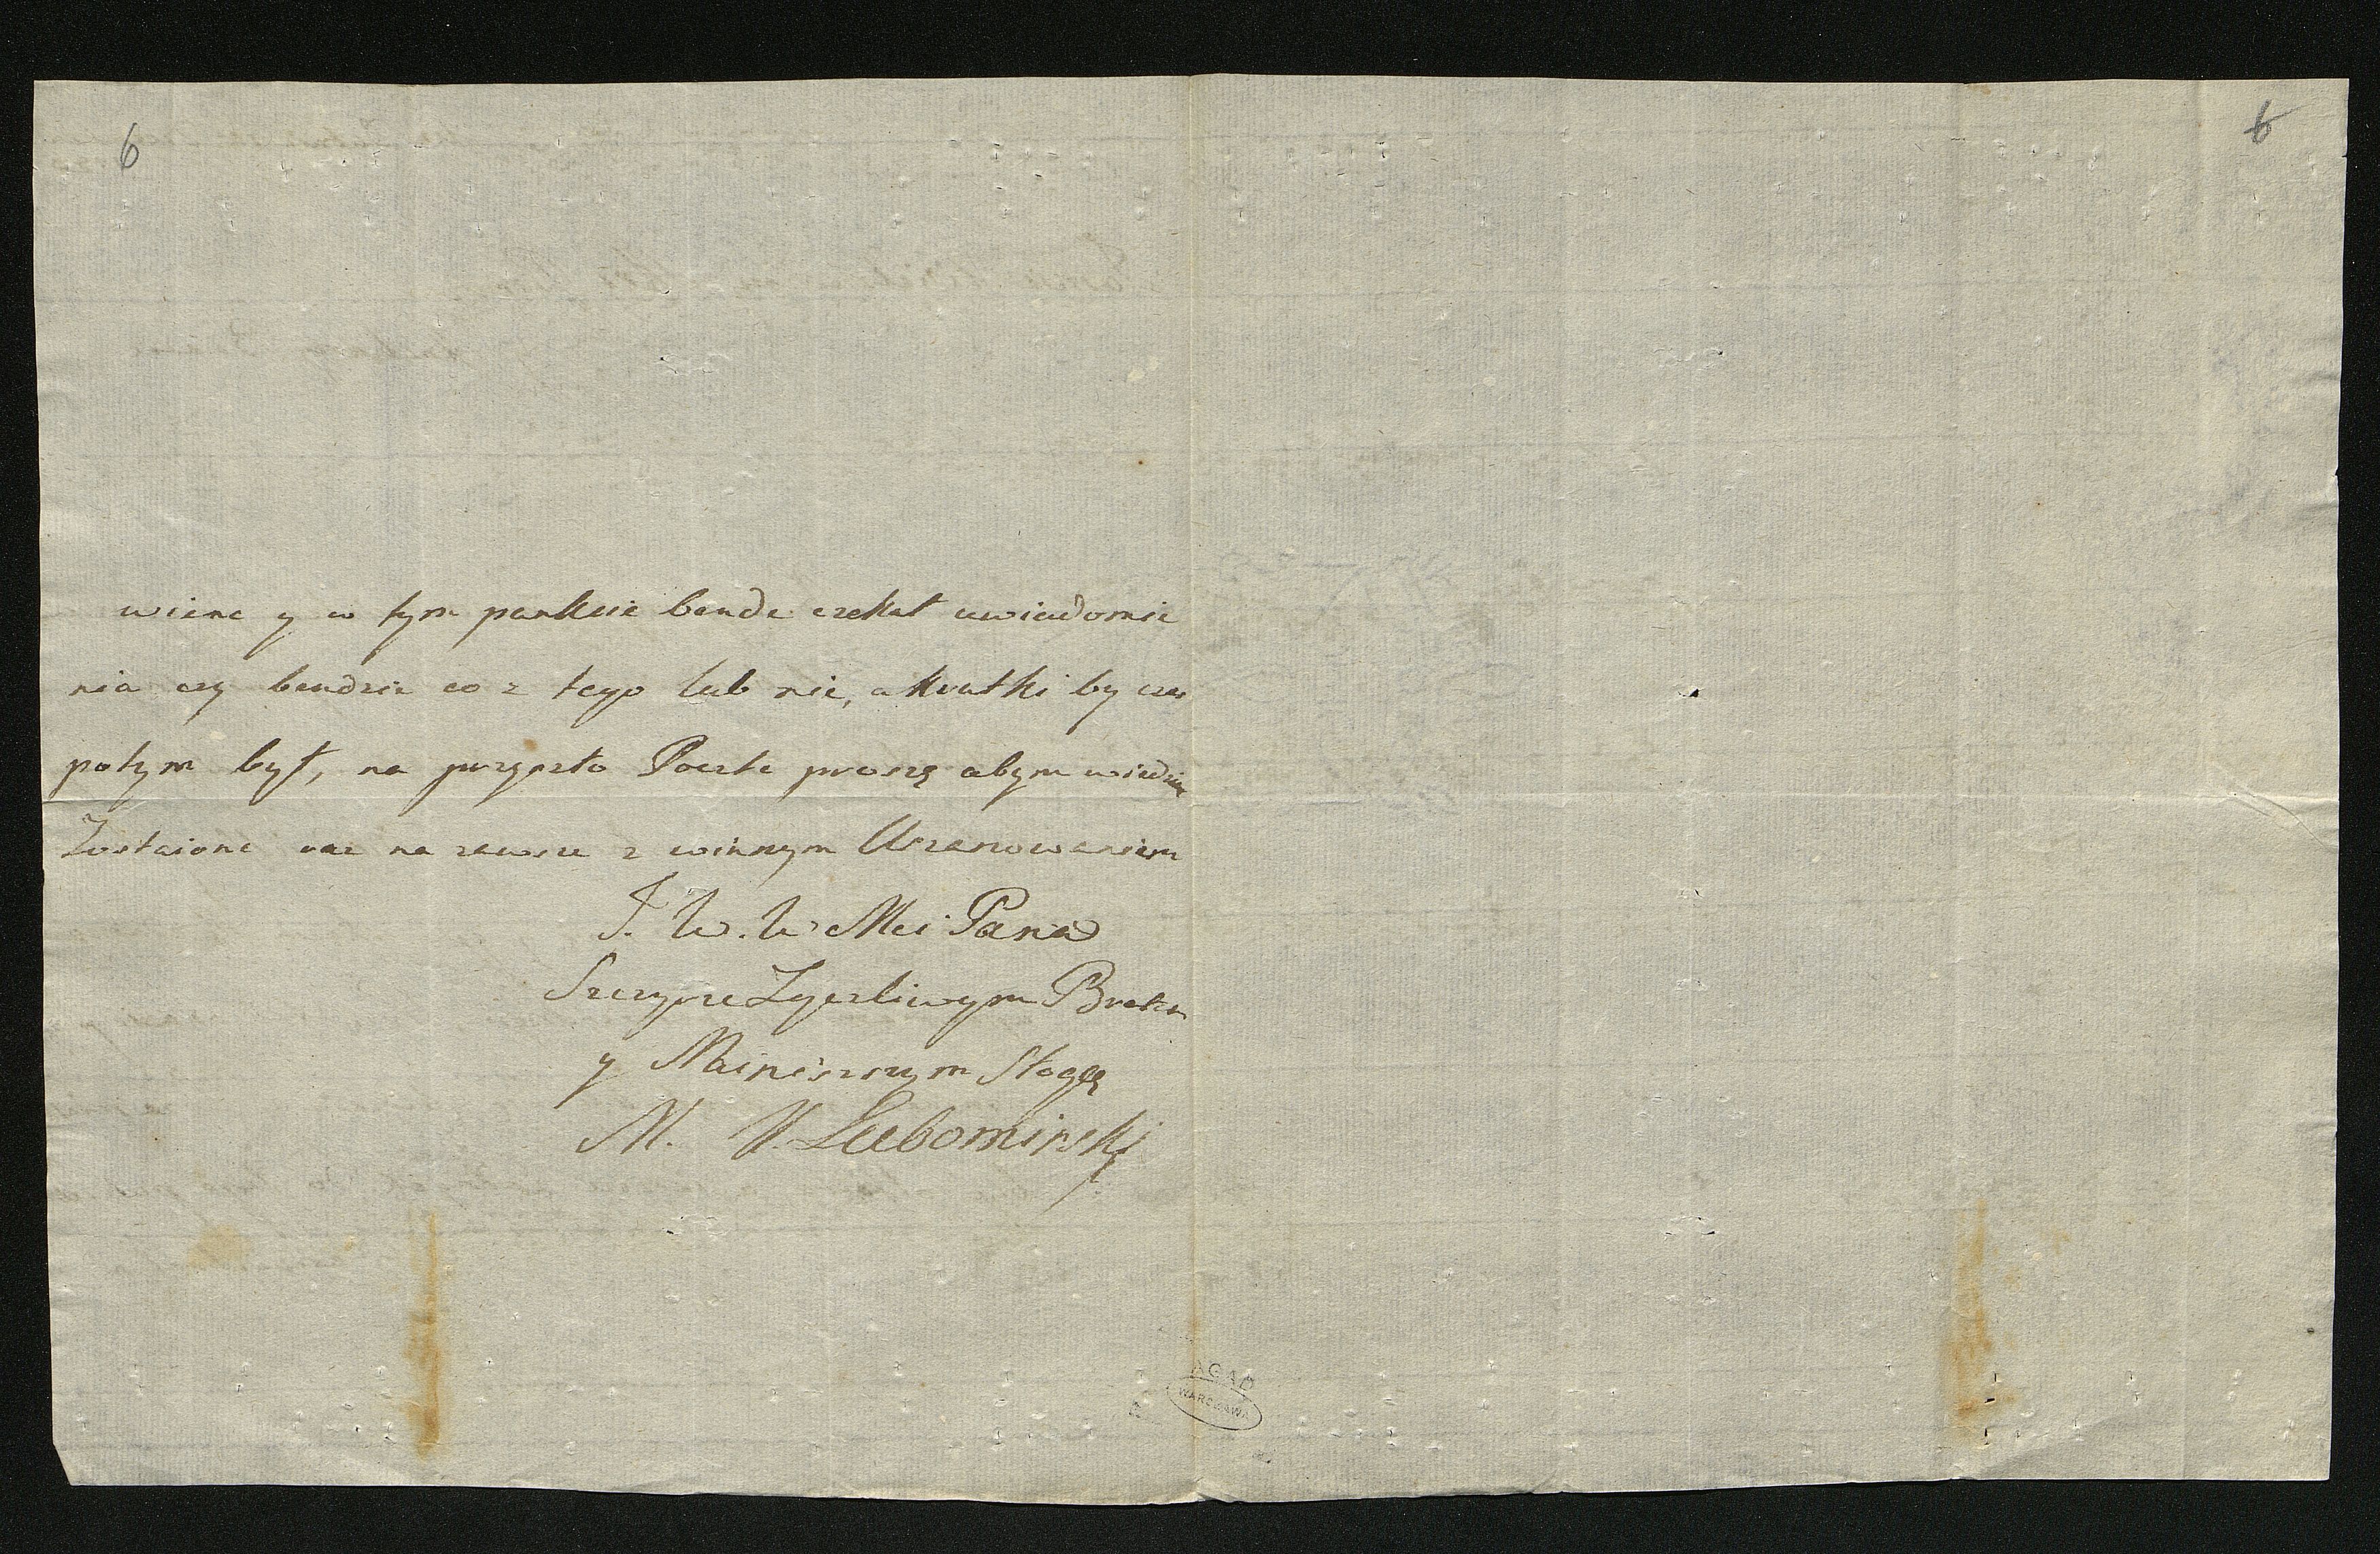 6
6
wienc y w tym punkcie bende czekał uwiadomie
nia czy bendzie co z tego lub nie, a krutki by czas
potym był, na przyszło Poczte proszę abym wiedział
Zostaione raz na zawsze z winnym Uszanowaniem
J. W. W Mci Pana
Szczyrze Zyczliwym Bratem
y Nainiszszym Sługą
M. X. Lubomirski
AGAD
WARSZAWA